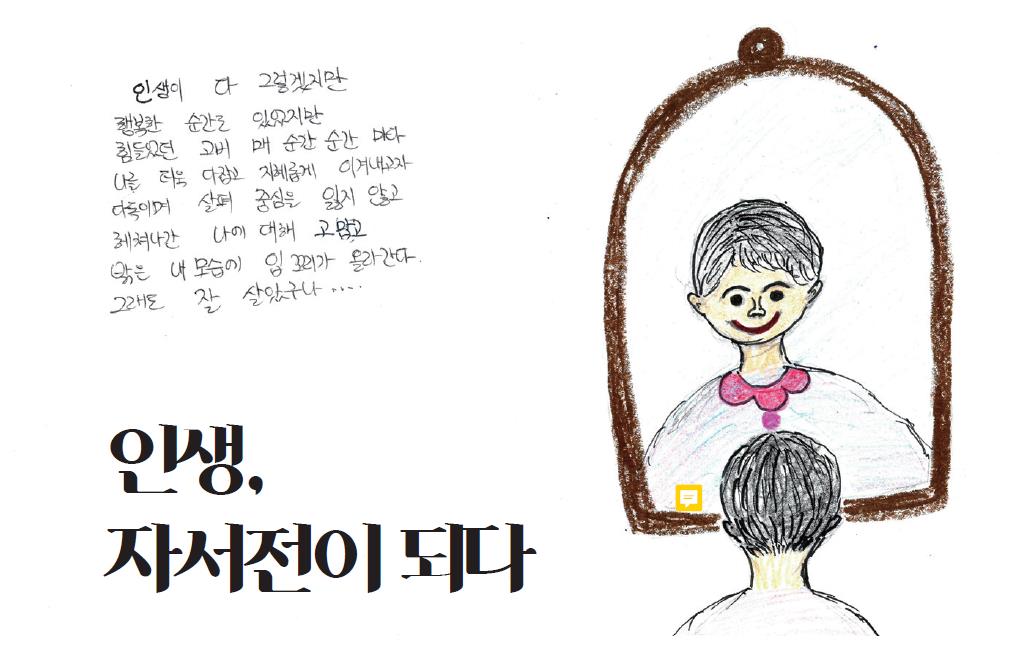 인생이 다 그렇겠지만
행복한 순간도 있었지만
힘들었던 고비 매 순간 순간 마다
나를 더욱 다잡고 지혜롭게 이겨내고자
다독이며 살펴 중심을 잃지 않고
헤쳐나간 나에 대해 고맙고
맑은 내 모습에 입꼬리가 올라간다.
그래도 잘 살았구나 ....
인생,
자서전이 되다